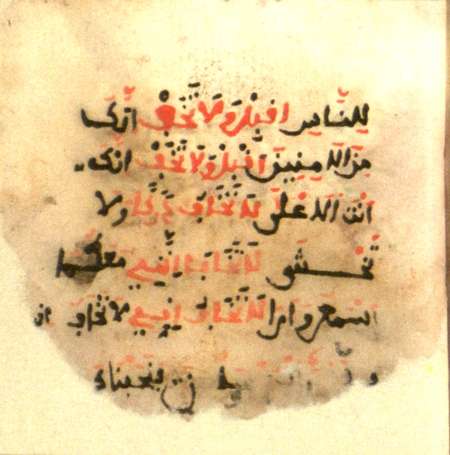 للناس اقبل ولا تخف انك
من الامنين اقبل ولا تخف انك
انت الاعلى لا تخاف دركا ولا
تخشى لا تخافا انني معكما
اسمع وارا لا تخاف اني لا تخاف